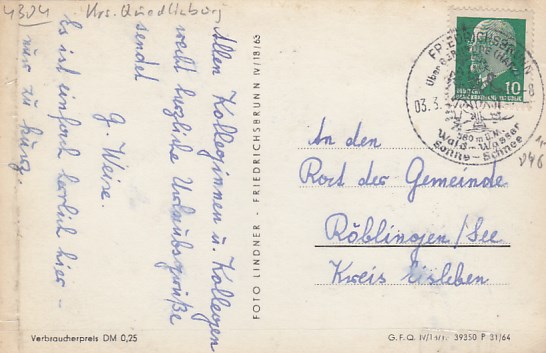 4304 Krs. Quedlinburg
Allen Kolleginnen u. Kollegen
recht herzliche Urlaubsgrüße
sendet
G. Weise.
Es ist einfach herrlich hier –
nur zu kurz.
FOTO LINDNER - FRIEDRICHSBRUNN IV/118/63
10
FRIEDRICHSBRUNN
03.3.
-8
580 m ü.N.
Wald - Wasser
Sonne - Schnee
An den
Rat der Gemeinde
Röblingen/See
Kreis Eisleben
Verbraucherpreis DM 0,25
G.F.Q. 39350 P 31/64